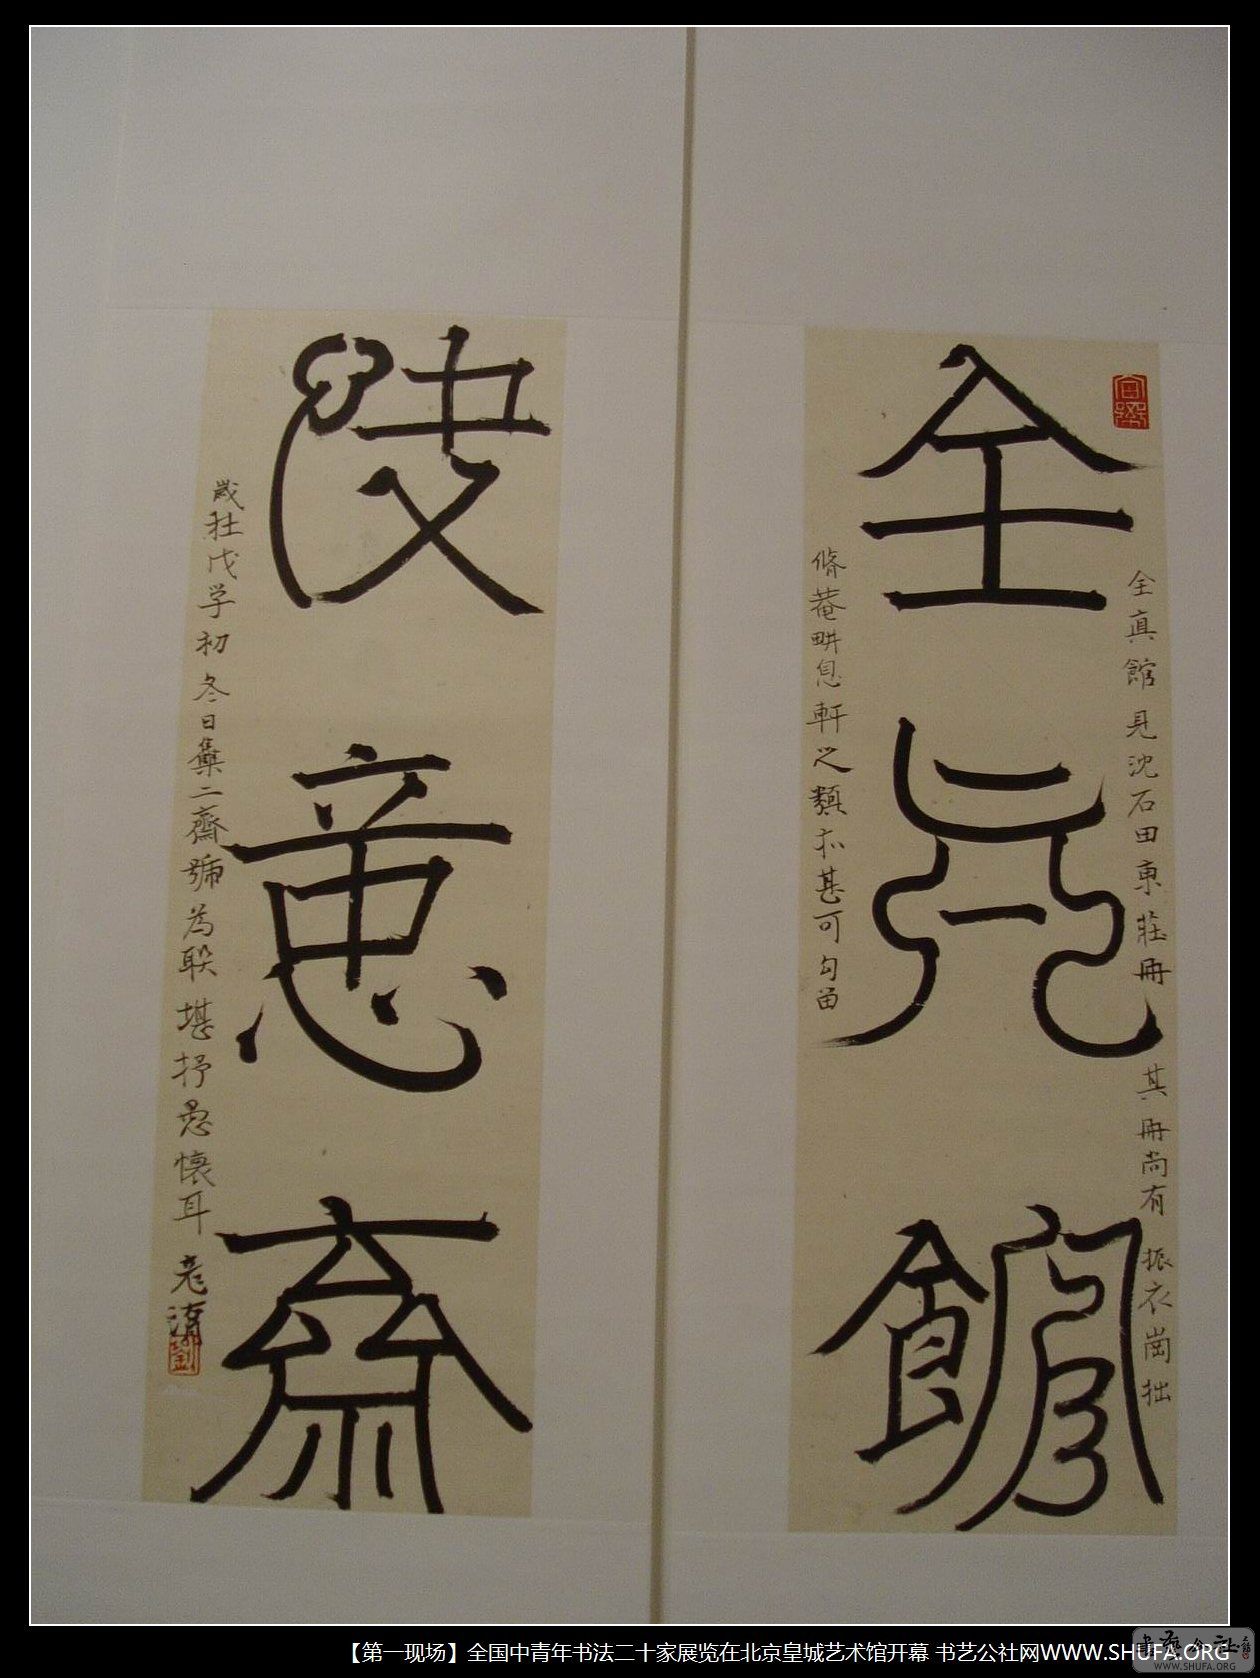 全真館
全真館 見沈石田東莊冊 其冊尚有 振衣崗 拙
脩菴 畊息軒之類 亦甚可勾留
快意齋
歲在戊子初冬日集二齋號為聯 堪抒愚懷耳 老
劉
【第一现场】全国中青年书法二十家展览在北京皇城艺术馆开幕 书艺公社网WWW.SHUFA.ORG
书艺公社
WWW.SHUFA.ORG